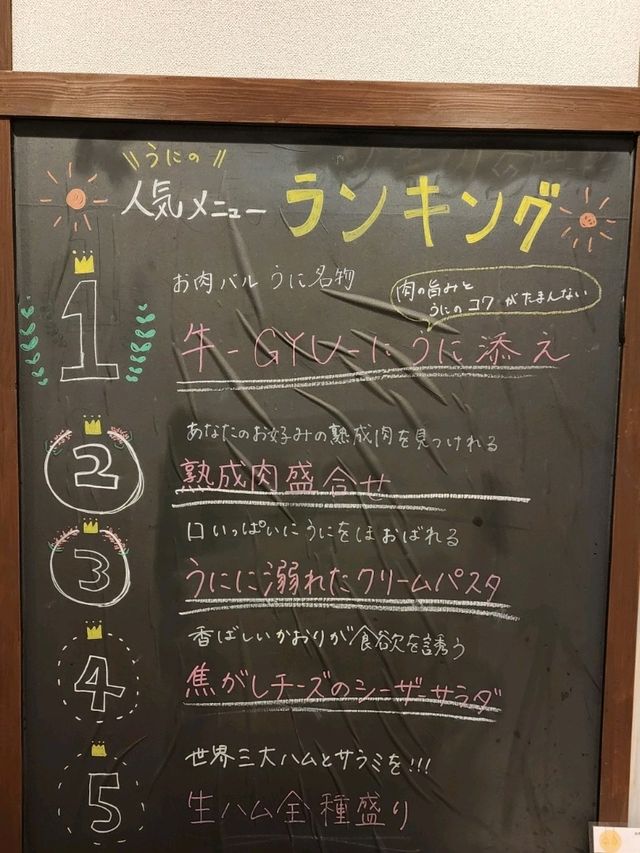 うにの
人気メニュー ランキング
1
お肉バル うに名物
肉の旨みと
うにのコクがたまんない
牛-GYU-にうに添え
2
あなたのお好みの熟成肉を見つけれる
熟成肉盛合せ
3
口いっぱいにうにをほおばれる
うにに溺れたクリームパスタ
4
香ばしいかおりが食欲を誘う
焦がしチーズのシーザーサラダ
5
世界三大ハムとサラミを!!!
生ハム全種盛り